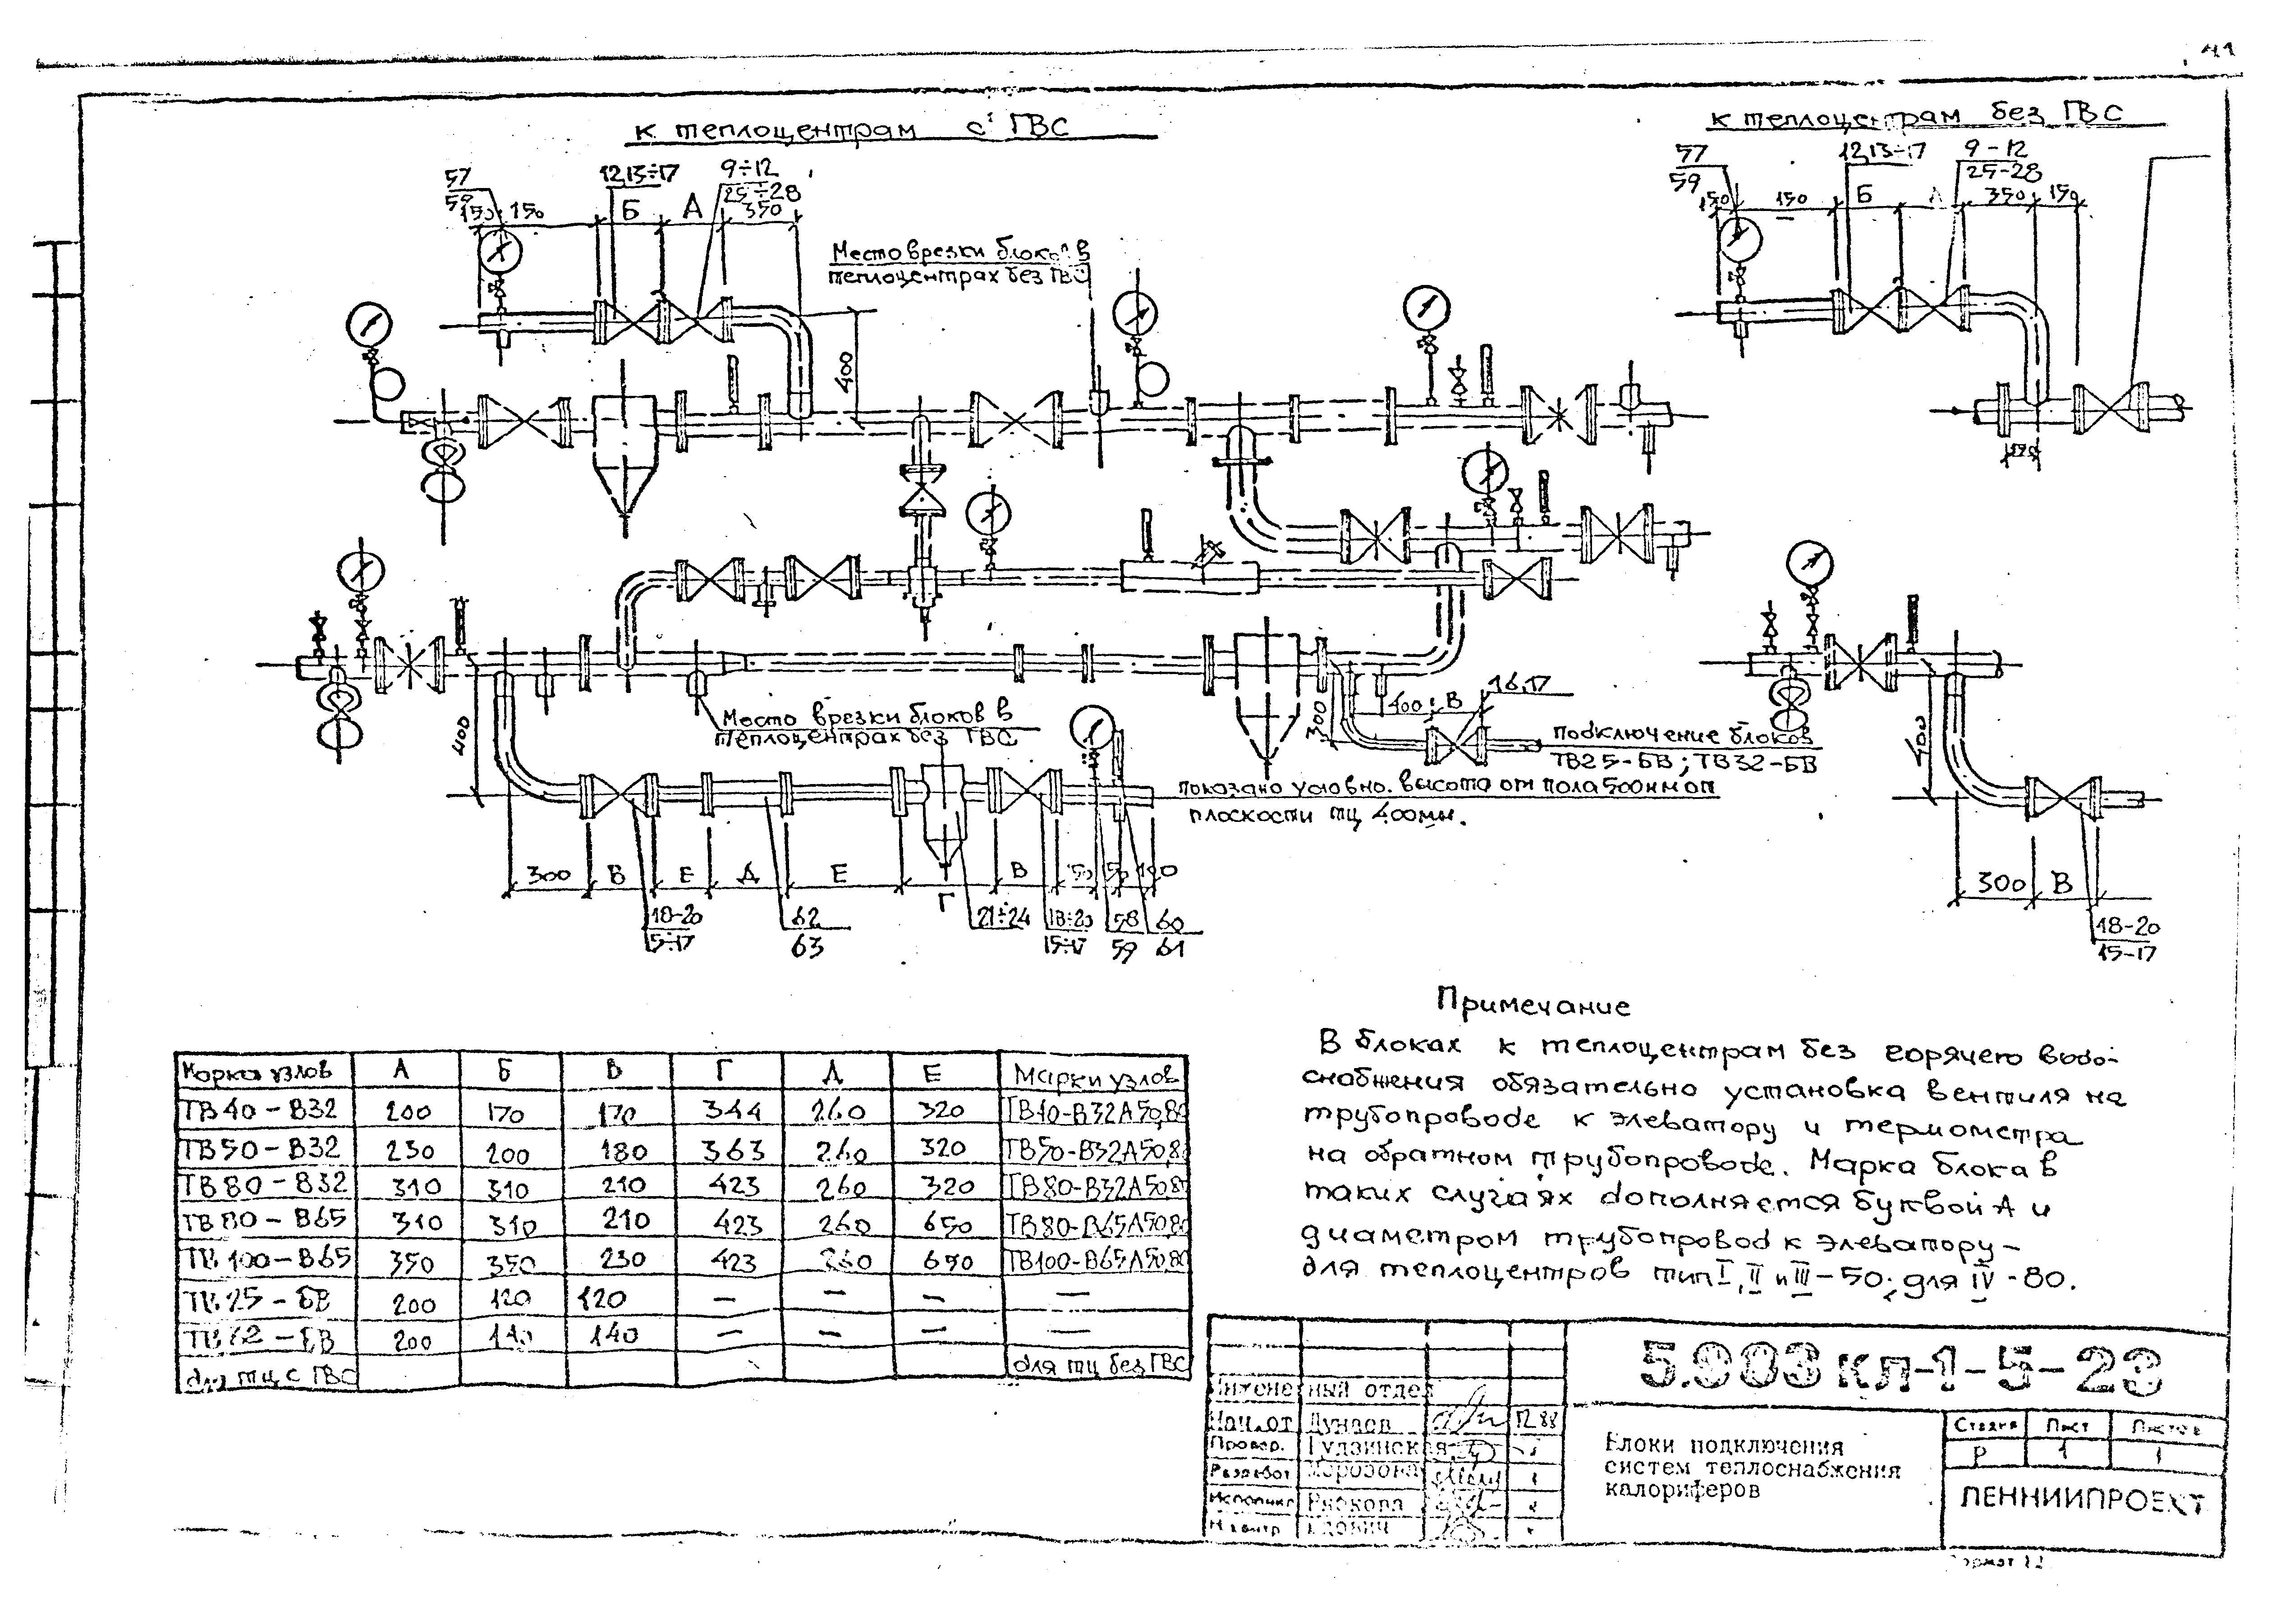 41
к теплоцентрам с ГВС
к теплоцентрам без ГВС
57
59
12,13÷17
9÷12
25÷28
150 150 Б А 350
Место врезки блоков в
теплоцентрах без ГВС
400
57
59
12,13-17
9-12
25-28
150 150 Б А 350 150
400
Место врезки блоков в
теплоцентрах без ГВС
300
400 В
16,17
подключение блоков
ТВ25-БВ; ТВ32-БВ
показано условно. высота от пола 500мм от
плоскости тц 400мм.
300 В Е Д Е Г В 50
18-20
62
63
21÷24
18÷20
15÷17
58
59
60
61
400
300 В
18-20
15-17
Примечание
В блоках к теплоцентрам без горячего водо-
снабжения обязательно установка вентиля на
трубопроводе к элеватору и термометра
на обратном трубопроводе. Марка блока в
таких случаях дополняется буквой А и
диаметром трубопровод к элеватору-
для теплоцентров тип I, II и III-50; для IV-80.
Марка узлов А Б В Г Д Е Марки узлов
ТВ40-В32 200 170 170 344 260 320 ТВ40-В32А50,80
ТВ50-В32 230 200 180 363 260 320 ТВ50-В32А50,80
ТВ80-В32 310 310 210 423 260 320 ТВ80-В32А50,80
ТВ80-В65 310 310 210 423 260 650 ТВ80-В65А50,80
ТВ100-В65 350 350 230 423 260 650 ТВ100-В65А50,80
ТВ25-БВ 200 120 120 — — — —
200 140 140 — — — —
для тц с ГВС для тц без ГВС
5.903 кл-1-5-23
Инженерный отдел
Нач.от Дунаев 12.88
Провер. Гудзинская
Разработ Морозова
Исполнил
Н.контр
Блоки подключения
систем теплоснабжения
калориферов
Стадия Лист Листов
Р 1 1
ЛЕННИИПРОЕКТ
Формат 12